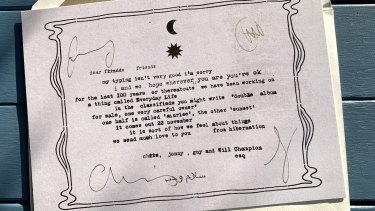 dear friends friends
my typing isn't very good i'm sorry
i and we hope wherever you are you're ok
for the last 100 years or thereabouts we have been working on
a thing called Everyday Life
in the classifieds you might write 'double album
for sale, one very careful owner'
one half is called 'sunrise', the other 'sunset'
it comes out 22 november
it is sort of how we feel about things
we send much love to you from hibernation
chris, jonny, guy and Will Champion
esq